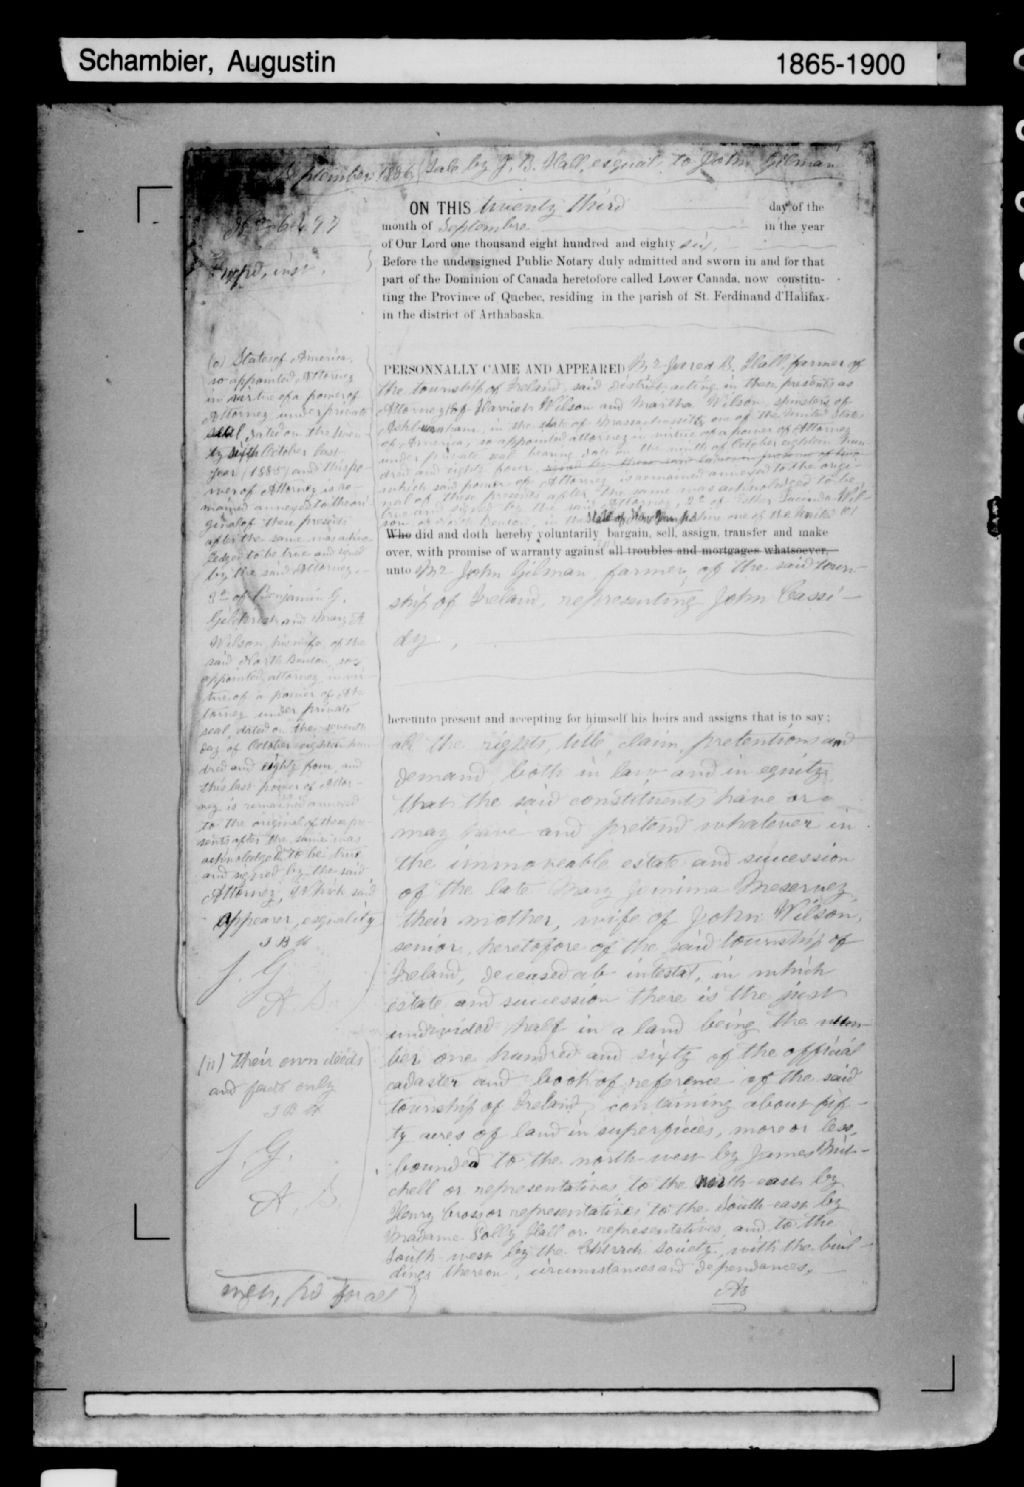 Schambier, Augustin 1865-1900
September 1886 Sale by J. B. Hall, esqual. to John Gilman
ON THIS twenty third day of the
month of September in the year
of Our Lord one thousand eight hundred and eighty six,
Before the undersigned Public Notary duly admitted and sworn in and for that
part of the Dominion of Canada heretofore called Lower Canada, now constitu-
ting the Province of Quebec, residing in the parish of St. Ferdinand d'Halifax,
in the district of Arthabaska.
PERSONNALLY CAME AND APPEARED Mr Jared B. Hall farmer of
the township of Ireland, said district acting in these presents as
Attorney of Harriet Wilson and Martha Wilson, spinsters of
Ashburnham, in the state of Massachusetts one of the United States
of America, so appointed attorney in virtue of a power of Attorney
under private seal bearing date on the month of October eighteen hun-
dred and eighty four,
which said power of Attorney is remained annexed to the origi-
nal of these presents after the same was acknowledged to be
true and signed by the said Attorney, 2o of Lucinda Wil-
son, of North Benton, in the State of New Hampshire one of the United (o)
Who did and doth hereby voluntarily bargain, sell, assign, transfer and make
over, with promise of warranty against all troubles and mortgages whatsoever,
unto Mr John Gilman, farmer, of the said town-
ship of Ireland, representing John Cassi-
dy,
hereunto present and accepting for himself his heirs and assigns that is to say;
all the rights, title, claim, pretentions and
demand both in law and in equity
that the said constituents have or
may have and pretend whatever in
the immoveable estate and succession
of the late Mary Jemima Meservey,
their mother, wife of John Wilson,
senior, heretofore of the said township of
Ireland, deceased ab intestat, in which
estate and succession there is the just
undivided half in a land being the num-
ber one hundred and sixty of the official
cadaster and book of reference of the said
township of Ireland, containing about fif-
ty acres of land in superficies, more or less,
bounded to the north-west by James Mit-
chell or representatives, to the north-east by
Henry Cross or representatives to the South-east by
Madame Polly Hall or representatives, and to the
South-west by the Church Society, with the buil-
dings thereon, circumstances and dependances.
(o) States of America,
so appointed Attorney
in virtue of a power of
Attorney under private
seal, dated on the twen-
ty sixth October last
year (1885) and this po-
wer of Attorney is re-
mained annexed to the ori-
ginal of these presents
after the same was ackno-
ledged to be true and signed
by the said Attorney.
3o of Benjamin G.
Gilchrist and Mary A
Wilson, his wife, of the
said North Benton, so
appointed attorney in vir-
tue of a power of At-
torney under private
seal, dated on the seventh
day of October eighteen hun-
dred and eighty four, and
this last power of Attor-
ney is remained annexed
to the original of these pre-
sents after the same was
acknowledged to be true
and signed by the said
Attorney, which said
Appearer, esquality
J B H
J. G.
A. S.
(n) their own deeds
and facts only
J B H
J. G.
A. S.